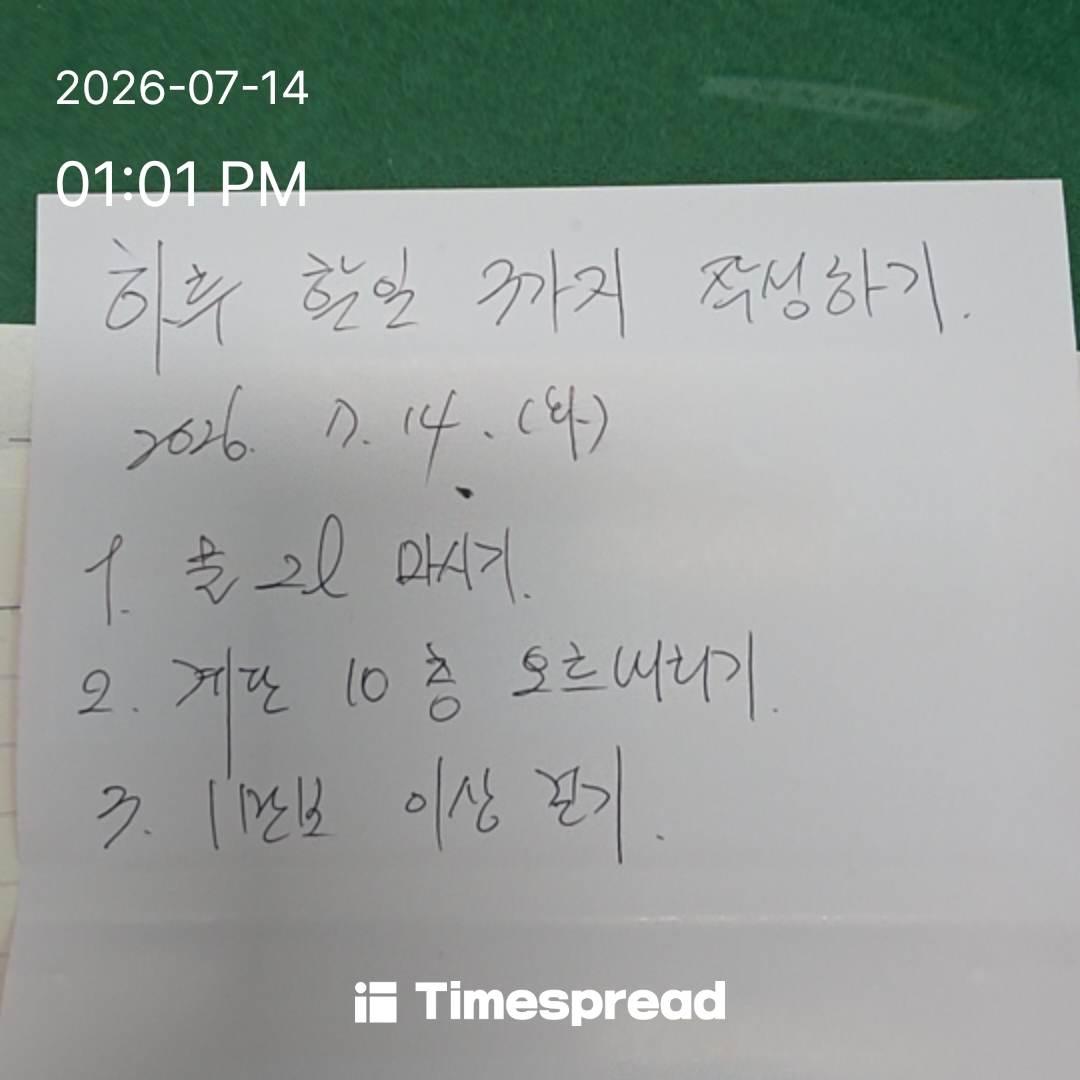 2026-07-14
01:01 PM
하루 할일 3가지 작성하기.
2026. 7. 14. (화)
1. 물 2l 마시기.
2. 계단 10층 오르내리기.
3. 11만보 이상 걷기.
Timespread